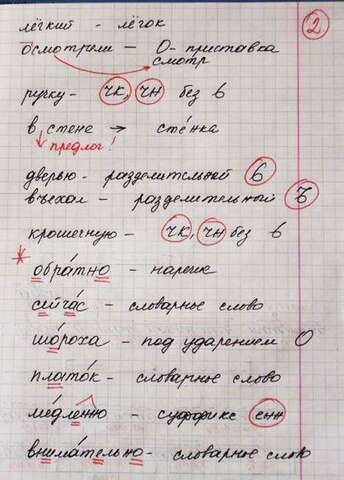 2
лёгкий - лёгок
осмотрели - О - приставка
смотр
ручку - чк, чн без ь
в стене → стенка
предлог!
дверью - разделительный ь
въехал - разделительный ъ
крошечную - чк, чн без ь
* обратно - наречие
сейчас - словарное слово
шороха - под ударением О
платок - словарное слово
медленно - суффикс енн
внимательно - словарное слово